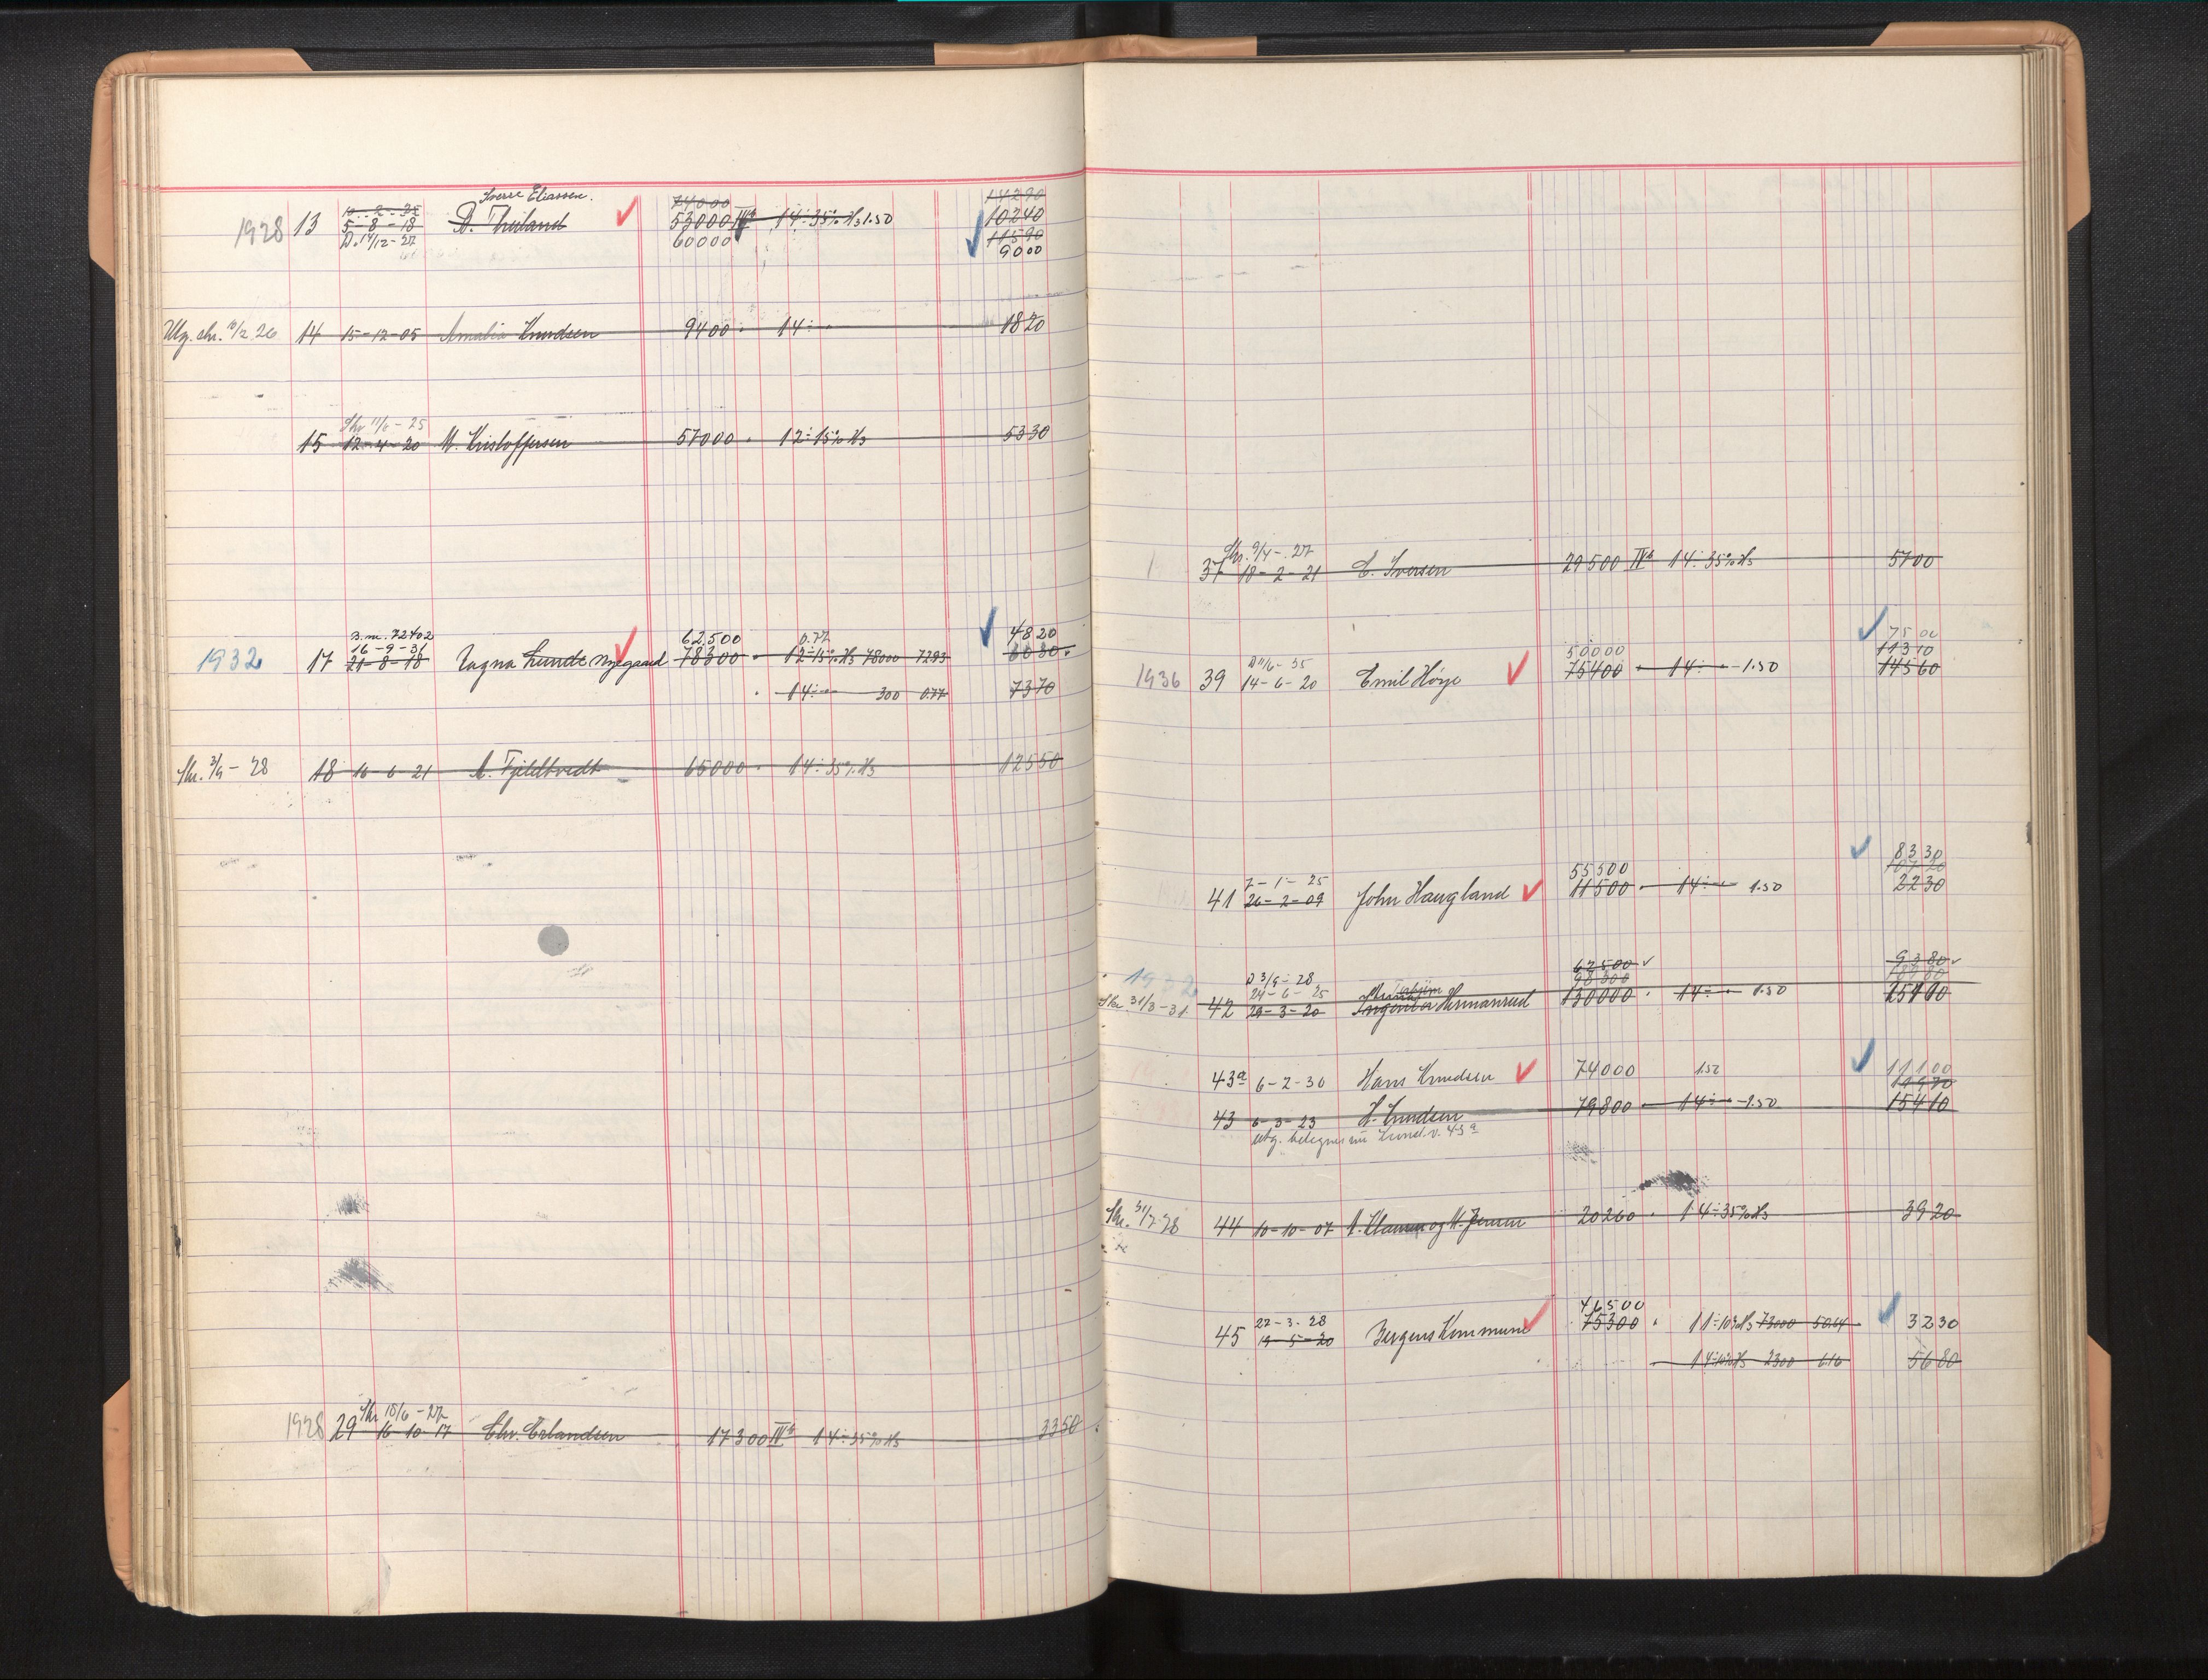 Sverre Eliassen.
10-2-25 74000 14290
1928 13 5-8-18 53000 IVb 14÷35% H3 1.50 10240
D. 14/12-27 60000 11590
9000
Utg. skr. 10/2 26 14 15-12-05 Amalia Knudsen 9400 14÷ 1820
Skr 11/6-25
15 12-4-20 M. Kristoffersen 57000 12÷15% H3 5330
B.nr. 72402
16-9-31 62500 0.77 4820
1932 17 21-8-18 Ragna Lunde Nygaard 78300 12÷15% H3 78000 72.93
14÷ 300 0.77 7370
Skr. 3/9-28 18 16-6-21 A. Fjeldtvedt 65000 14÷35% H3 12550
Skr 18/6-27
1928 29 16-10-17 Chr. Erlandsen 17300 IVb 14÷35% H3 3350
Skr. 9/4-27
37 18-2-21 E. Iversen 29500 IVb 14÷35% H3 5700
D 11/6-35 50000 7500
11310
1936 39 14-6-20 Emil Høye 75400 14÷ 1.50 14560
8330
7-1-25 55500 10720
41 26-2-09 John Haugland 11500 14÷ 1.50 2230
1932 D 3/9-28 62500 9380
24-6-25 98300
Skr. 31/3-31. 42 29-3-20 Hermanrud 130000 14÷ 1.50
43a 6-2-30 Hans Knudsen 74000 1.50 11100
43 6-3-23 H. Knudsen 79800 14÷ 1.50 15410
utg. betegnes nu v. 43a
Skr. 31/7-28 44 10-10-07 og 20260 14÷35% H3 3920
22-3-28 46500
45 19-5-20 Bergens Kommune 75300 11÷10% H3 73000 50.64 3230
14÷10% H3 2300 6.16 5680